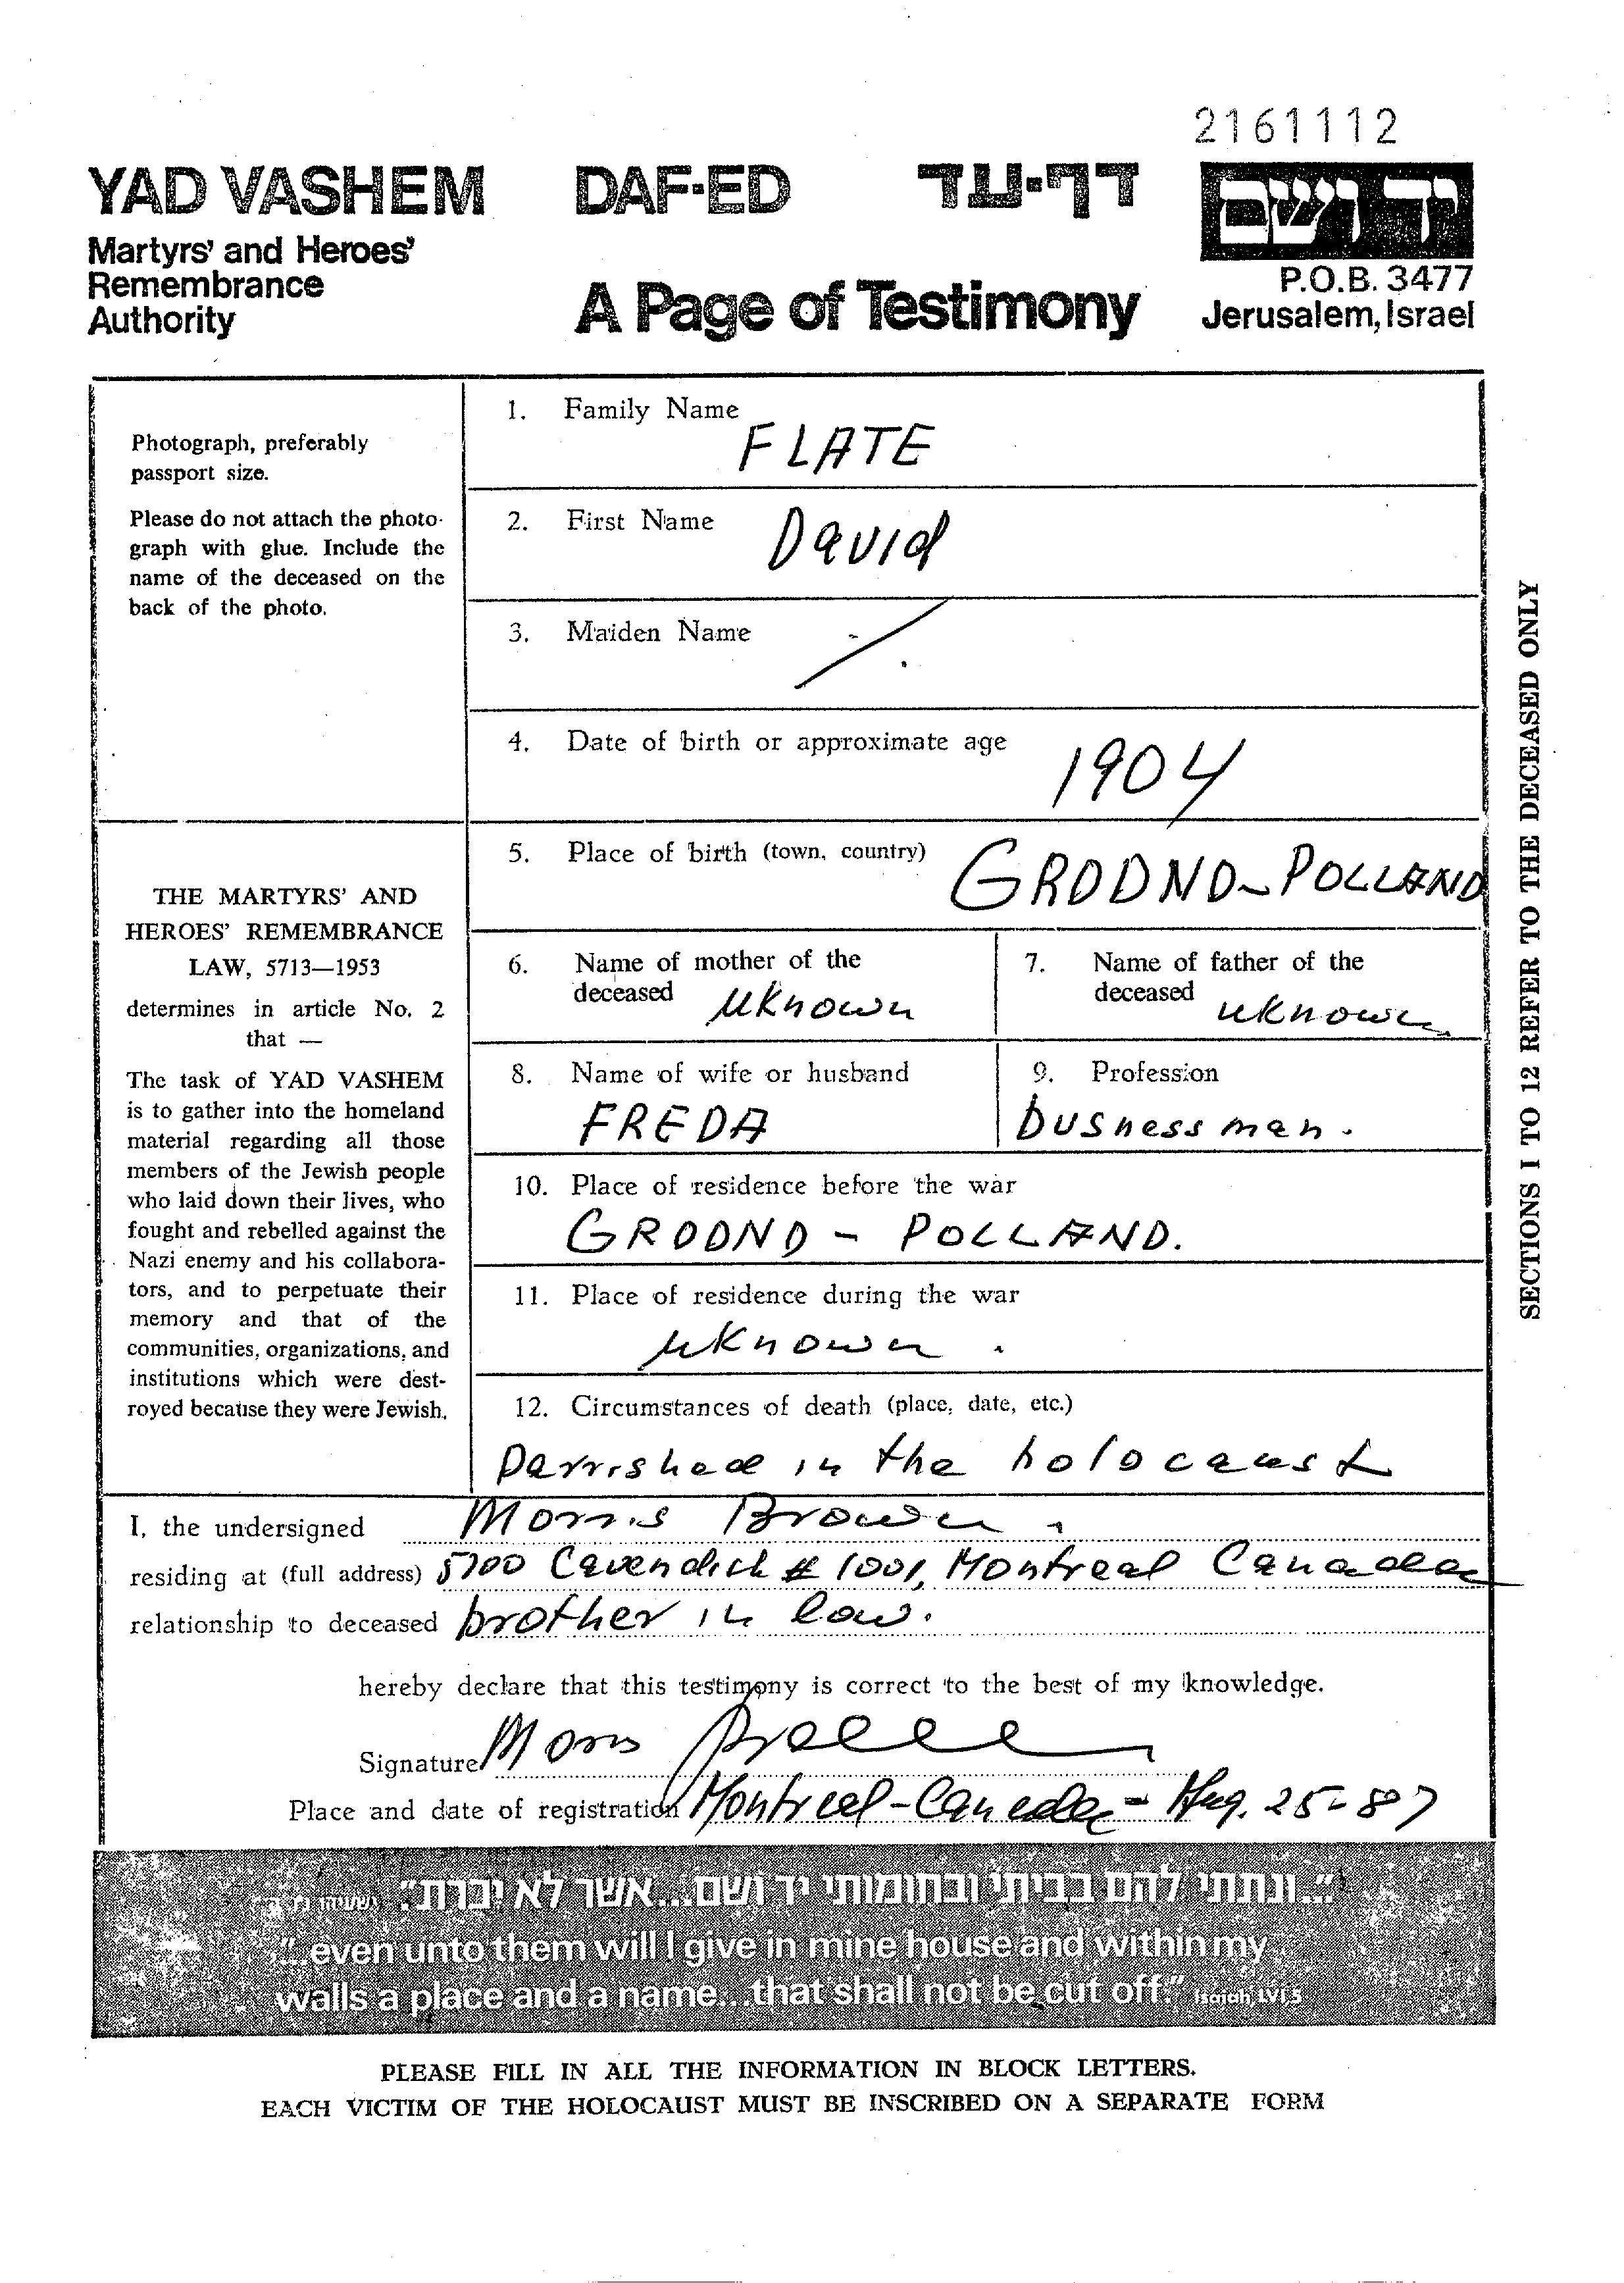 2161112
YAD VASHEM DAF-ED דף-עד יד ושם
Martyrs' and Heroes'
Remembrance
Authority
A Page of Testimony
P.O.B. 3477
Jerusalem, Israel
Photograph, preferably
passport size.
Please do not attach the photo-
graph with glue. Include the
name of the deceased on the
back of the photo.
THE MARTYRS' AND
HEROES' REMEMBRANCE
LAW, 5713—1953
determines in article No. 2
that —
The task of YAD VASHEM
is to gather into the homeland
material regarding all those
members of the Jewish people
who laid down their lives, who
fought and rebelled against the
Nazi enemy and his collabora-
tors, and to perpetuate their
memory and that of the
communities, organizations, and
institutions which were dest-
royed because they were Jewish.
1. Family Name
FLATE
2. First Name David
3. Maiden Name
4. Date of birth or approximate age 1904
5. Place of birth (town, country) GRODNO-POLLAND
6. Name of mother of the
deceased uknown
7. Name of father of the
deceased uknown
8. Name of wife or husband
FREDA
9. Profession
busnessman.
10. Place of residence before the war
GRODNO - POLLAND.
11. Place of residence during the war
uknown.
12. Circumstances of death (place, date, etc.)
Parrished in the holocaust
SECTIONS 1 TO 12 REFER TO THE DECEASED ONLY
I, the undersigned Morris Brown.
residing at (full address) 5700 Cavendich # 1001, Montreal Canada
relationship to deceased brother in law.
hereby declare that this testimony is correct to the best of my knowledge.
Signature Morris
Place and date of registration Montreal-Canada- Aug. 25-87
"...ונתתי להם בביתי ובחומותי יד ושם...אשר לא יכרת."
"...even unto them will I give in mine house and within my
walls a place and a name...that shall not be cut off." Isaiah, LVI, 5
PLEASE FILL IN ALL THE INFORMATION IN BLOCK LETTERS.
EACH VICTIM OF THE HOLOCAUST MUST BE INSCRIBED ON A SEPARATE FORM